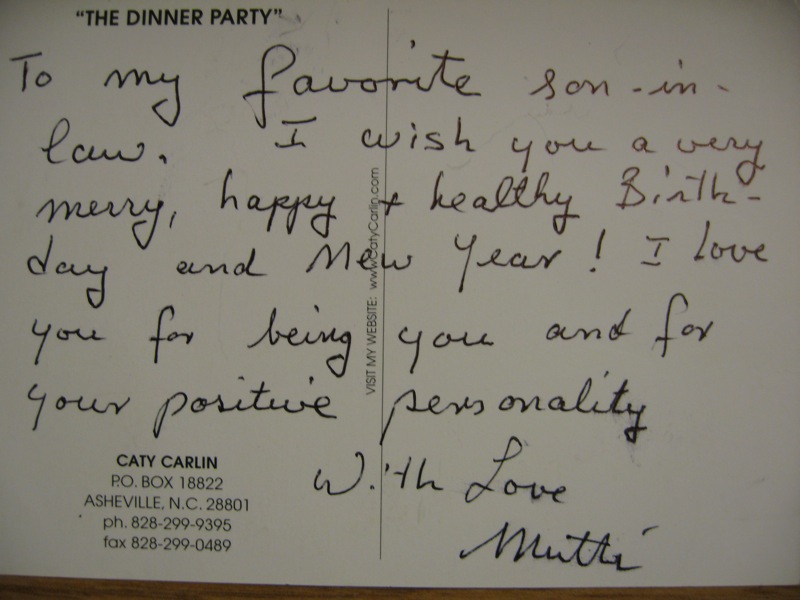 "THE DINNER PARTY"
To my favorite son-in-
law. I wish you a very
merry, happy + healthy Birth-
day and New Year! I love
you for being you and for
your positive personality
With Love
Mutti
VISIT MY WEBSITE: www.CatyCarlin.com
CATY CARLIN
P.O. BOX 18822
ASHEVILLE, N.C. 28801
ph. 828-299-9395
fax 828-299-0489